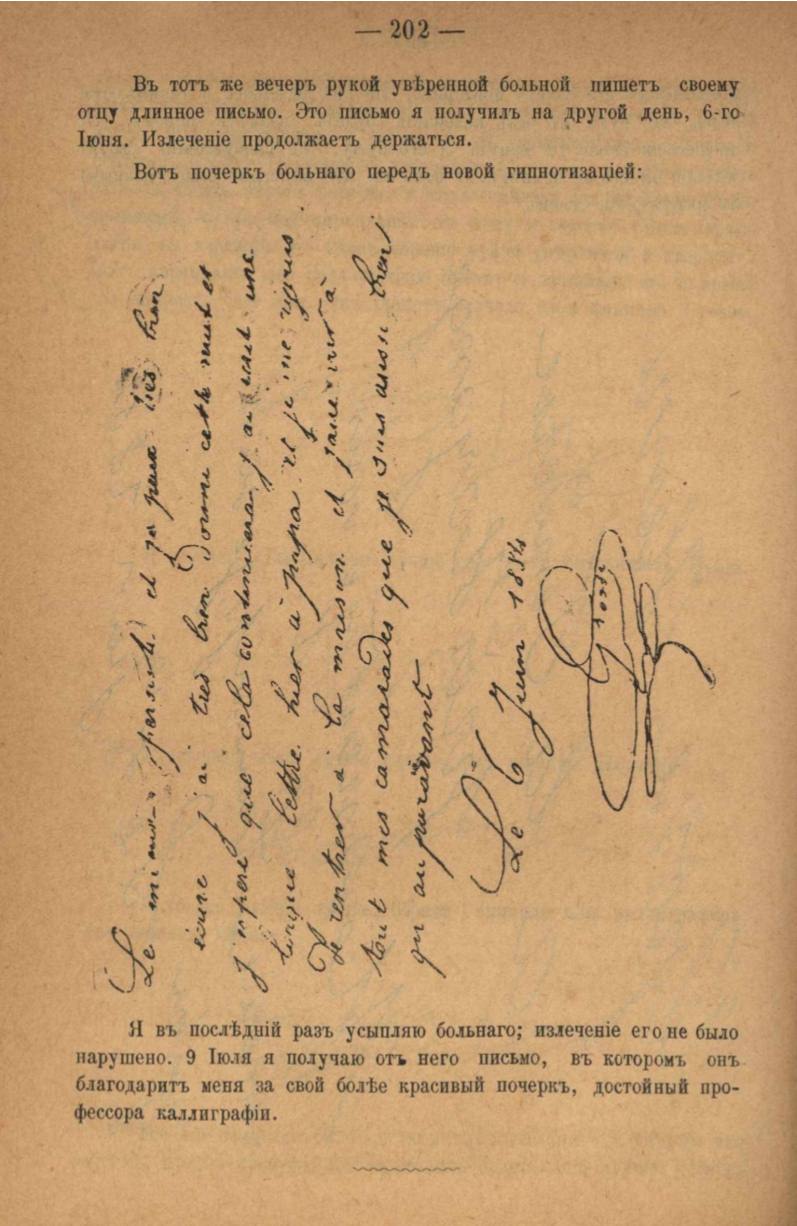 — 202 —
Въ тотъ же вечеръ рукой увѣренной больной пишетъ своему
отцу длинное письмо. Это письмо я получилъ на другой день, 6-го
Іюня. Излеченіе продолжаетъ держаться.
Вотъ почеркъ больнаго передъ новой гипнотизаціей:
Le mieux persiste et je peux très bien
écrire j'ai très bien dormi cette nuit et
j'espère que cela continuera j'ai écrit une
longue lettre hier à papa et je me réjouis
de rentrer à la maison et faire voir à
tout mes camarades que je suis aussi bien
qu'auparavant
Le 6 Juin 1884
Я въ послѣдній разъ усыпляю больнаго; излеченіе его не было
нарушено. 9 Іюля я получаю отъ него письмо, въ которомъ онъ
благодаритъ меня за свой болѣе красивый почеркъ, достойный про-
фессора каллиграфіи.